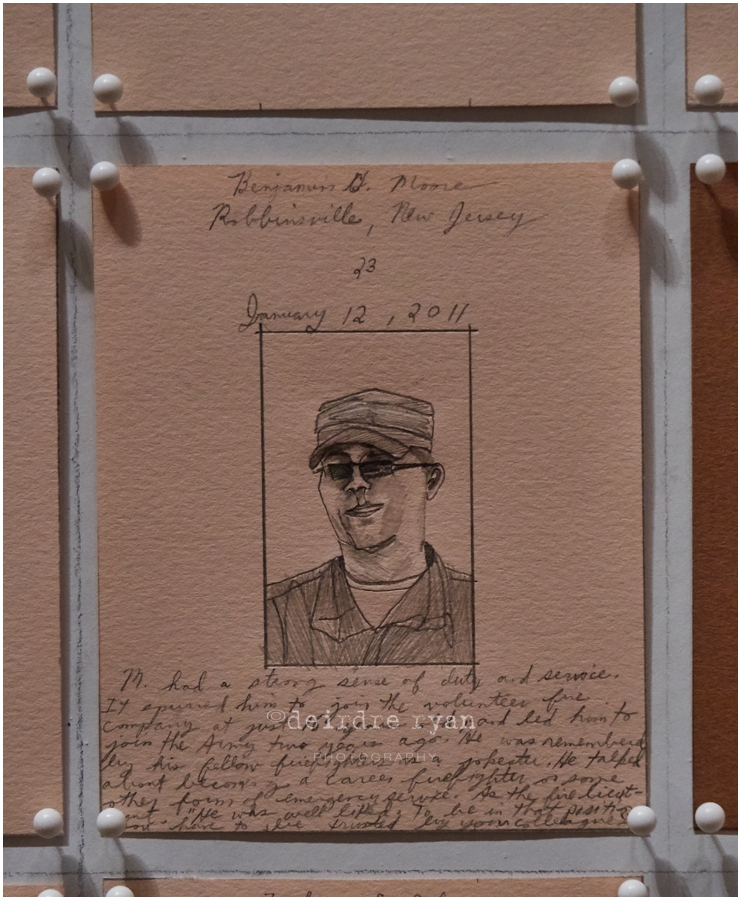 Benjamin G. Moore
Robbinsville, New Jersey
23
January 12, 2011
M. had a strong sense of duty and service.
It spurred him to join the volunteer fire
company at just and led him to
join the Army two years ago. He was remembered
by his fellow firefighters as a jokester. He talked
about becoming a career firefighter or some
other form of emergency service. As the fire lieut-
ant. "He was well liked, to be in that position
you have to be trusted by your colleagues
©deirdre ryan
PHOTOGRAPHY